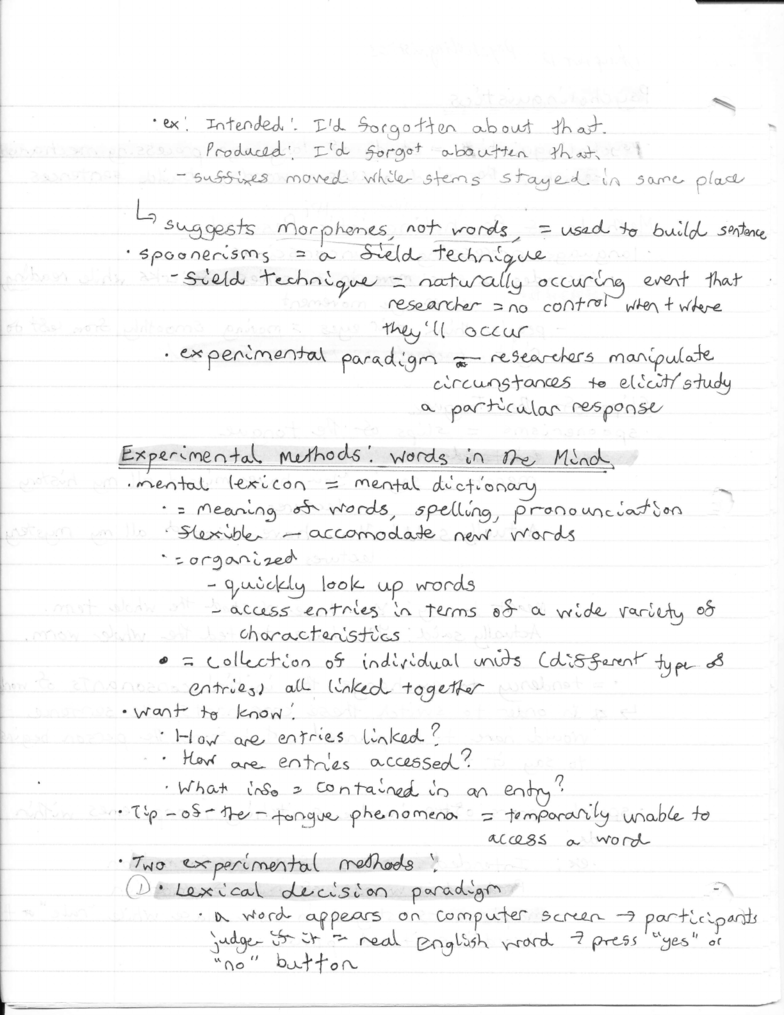 · ex: Intended: I'd forgotten about that.
Produced: I'd forgot aboutten that.
- suffixes moved while stems stayed in same place
↳ suggests morphones, not words, = used to build sentence
· spoonerisms = a field technique
- field technique = naturally occuring event that
researcher = no control when + where
they'll occur
· experimental paradigm = researchers manipulate
circumstances to elicit/study
a particular response
Experimental methods: words in the Mind
· mental lexicon = mental dictionary
· = meaning of words, spelling, pronounciation
· flexible - accomodate new words
· = organized
- quickly look up words
- access entries in terms of a wide variety of
characteristics
• = collection of individual units (different type of
entries) all linked together
· want to know:
· How are entries linked?
· How are entries accessed?
· What info = contained in an entry?
· Tip-of-the-tongue phenomena = temporarily unable to
access a word
· Two experimental methods:
① · Lexical decision paradigm
· a word appears on computer screen → participants
judge if it = real English word → press "yes" or
"no" button